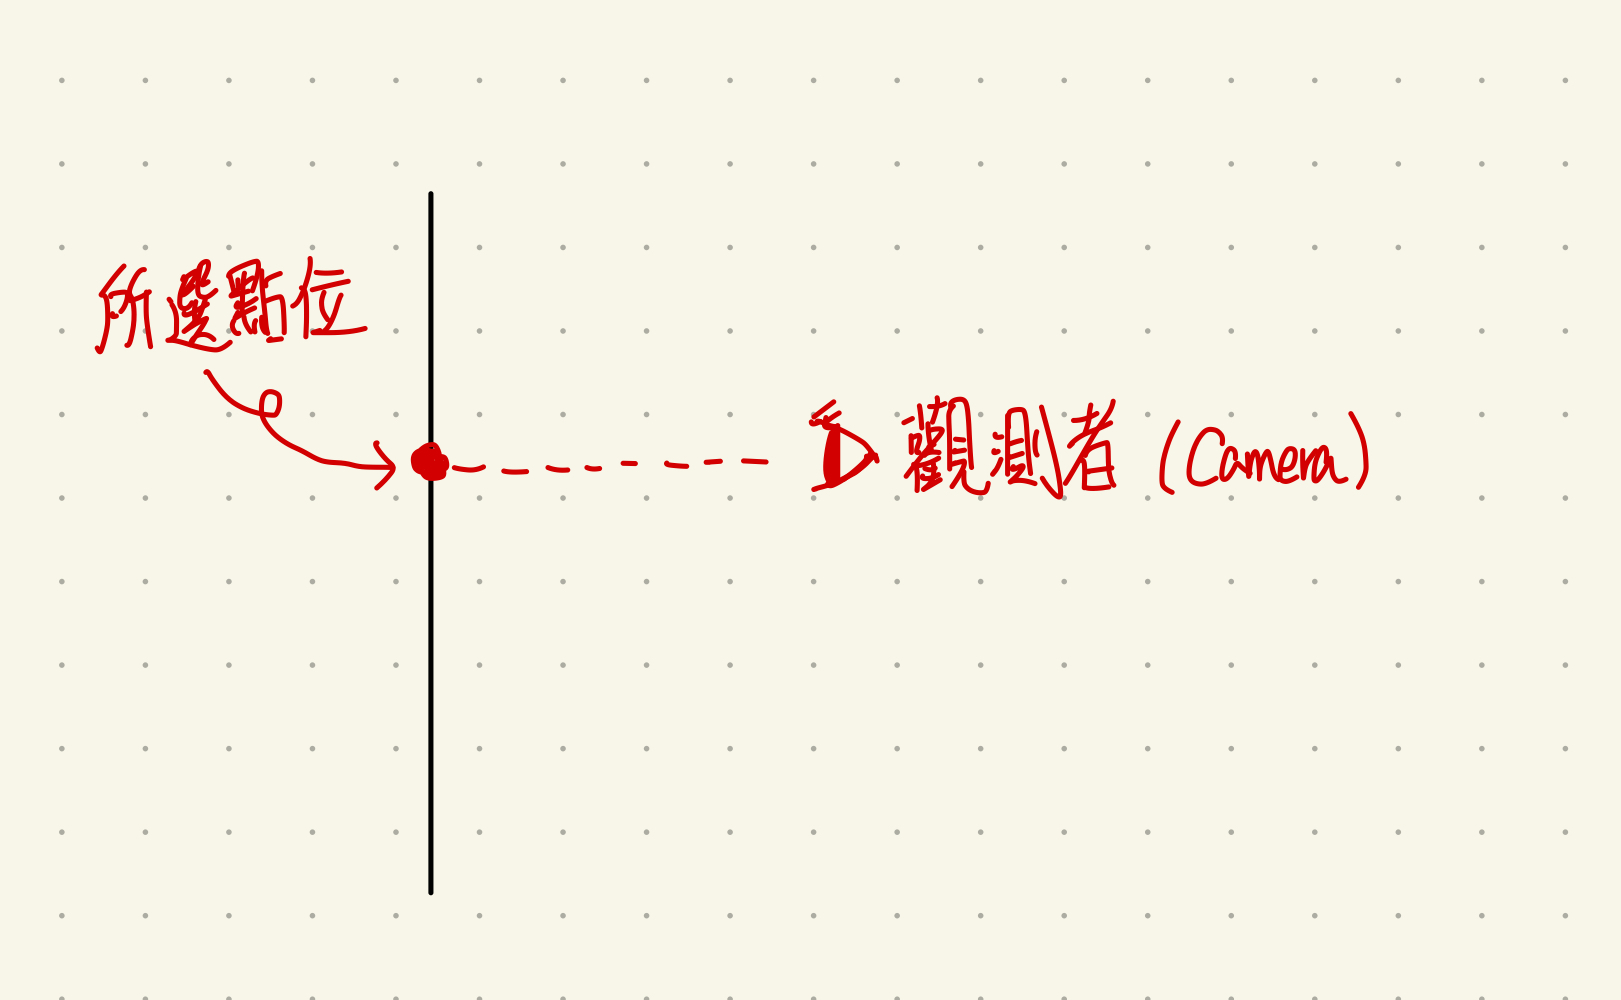 所選點位
觀測者 (Camera)